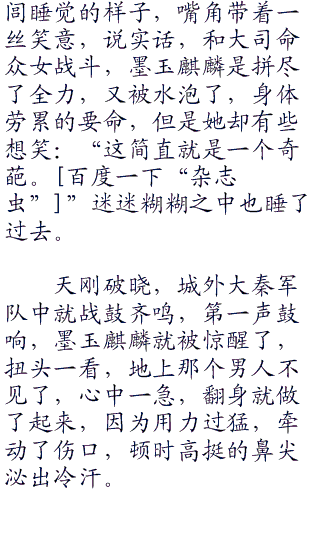 闾睡觉的样子，嘴角带着一
丝笑意，说实话，和大司命
众女战斗，墨玉麒麟是拼尽
了全力，又被水泡了，身体
劳累的要命，但是她却有些
想笑：“这简直就是一个奇
葩。[百度一下“杂志
虫”]”迷迷糊糊之中也睡了
过去。
天刚破晓，城外大秦军
队中就战鼓齐鸣，第一声鼓
响，墨玉麒麟就被惊醒了，
扭头一看，地上那个男人不
见了，心中一急，翻身就做
了起来，因为用力过猛，牵
动了伤口，顿时高挺的鼻尖
泌出冷汗。